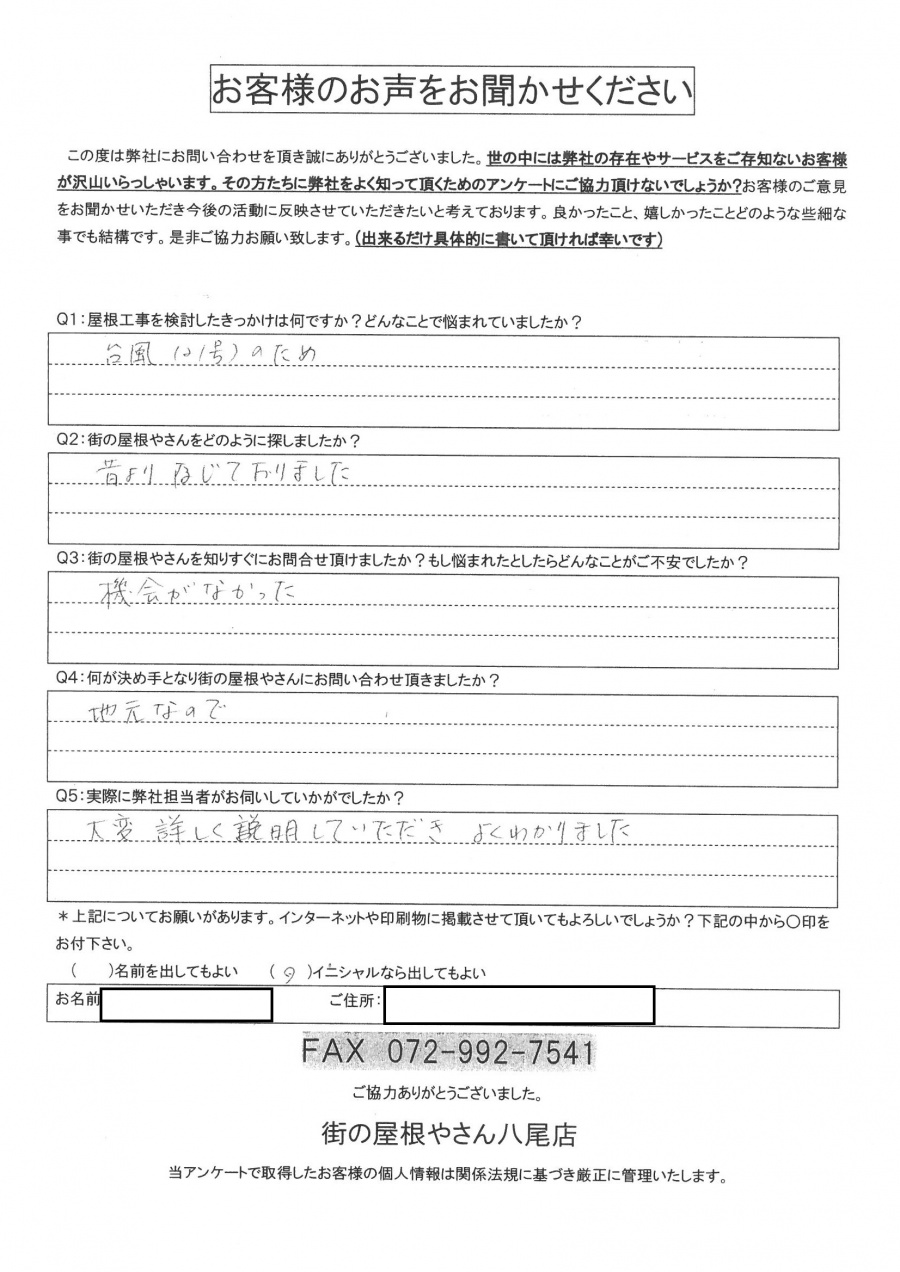 お客様のお声をお聞かせください
この度は弊社にお問い合わせを頂き誠にありがとうございました。世の中には弊社の存在やサービスをご存知ないお客様
が沢山いらっしゃいます。その方たちに弊社をよく知って頂くためのアンケートにご協力頂けないでしょうか?お客様のご意見
をお聞かせいただき今後の活動に反映させていただきたいと考えております。良かったこと、嬉しかったことどのような些細な
事でも結構です。是非ご協力お願い致します。(出来るだけ具体的に書いて頂ければ幸いです)
Q1:屋根工事を検討したきっかけは何ですか?どんなことで悩まれていましたか?
台風(21号)のため
Q2:街の屋根やさんをどのように探しましたか?
昔より存じておりました
Q3:街の屋根やさんを知りすぐにお問合せ頂けましたか?もし悩まれたとしたらどんなことがご不安でしたか?
機会がなかった
Q4:何が決め手となり街の屋根やさんにお問い合わせ頂きましたか?
地元なので
Q5:実際に弊社担当者がお伺いしていかがでしたか?
大変詳しく説明していただき よくわかりました
*上記についてお願いがあります。インターネットや印刷物に掲載させて頂いてもよろしいでしょうか?下記の中から〇印を
お付下さい。
( )名前を出してもよい (○)イニシャルなら出してもよい
お名前 ご住所:
FAX 072-992-7541
ご協力ありがとうございました。
街の屋根やさん八尾店
当アンケートで取得したお客様の個人情報は関係法規に基づき厳正に管理いたします。